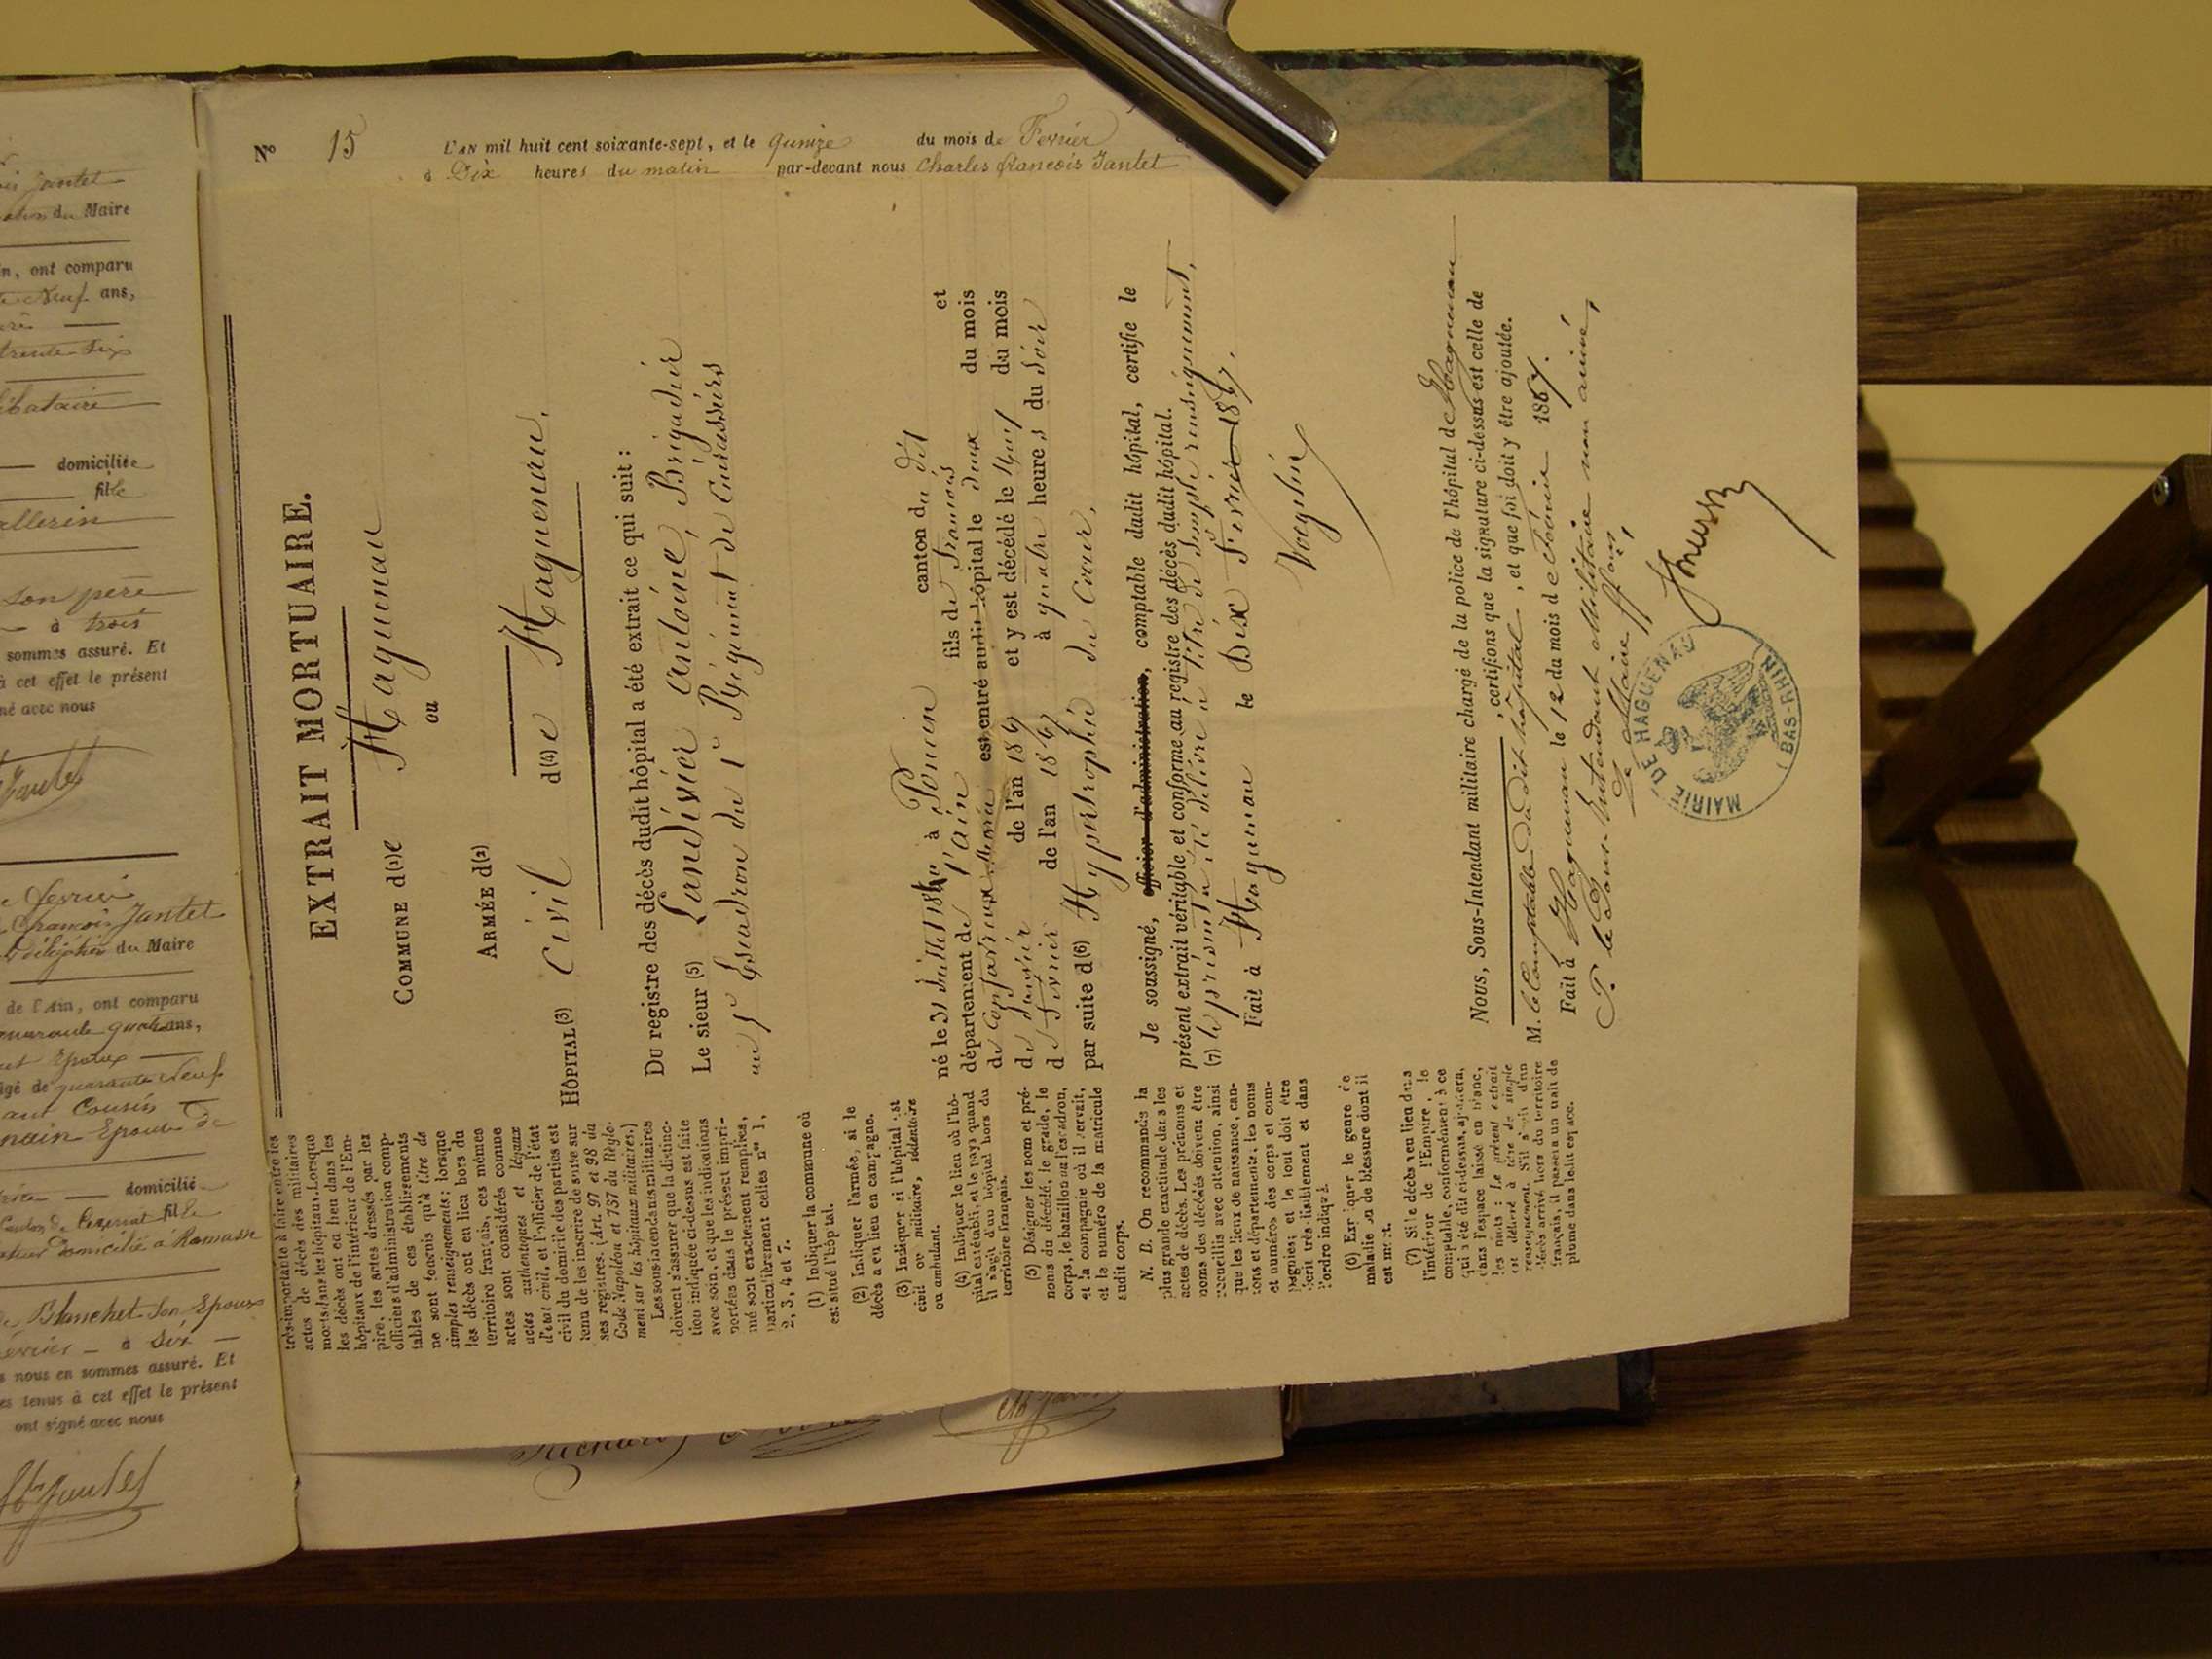 is Jantet
du Maire
n, ont comparu
Neuf ans,
trente Six
libataire
domiciliée
fille
allerin
son père
à trois
sommes assuré. Et
à cet effet le présent
né avec nous
fevrier
François Jantet
délégation du Maire
de l'Ain, ont comparu
quarante quatre ans,
Epoux
gé de quarante Neuf
ant Cousin
Epouse de
domicilié
Canton de Ceyzeriat fille
domicilié à Ramasse
Blanchet Son Epoux
évrier à Six
s nous en sommes assuré. Et
es tenus à cet effet le présent
ont signé avec nous
N° 15
L'AN mil huit cent soixante-sept, et le quinze du mois de Fevrier
à Dix heures du matin par-devant nous Charles françois Jantet
EXTRAIT MORTUAIRE.
COMMUNE d(1)e Haguenau
ou
ARMÉE d(2)
HÔPITAL(3) Civil d(4)e Haguenau.
Du registre des décès dudit hôpital a été extrait ce qui suit :
Le sieur (5) Landivier Antoine, Brigadier
au 5e Escadron du 1er Régiment de Cuirassiers
né le 31 Juillet à Poncin canton du dit et
département de l'ain fils de François
de est entré audit hôpital le deux du mois
de Janvier de l'an 1867 et y est décédé le Neuf du mois
de Fevrier de l'an 1867 à quatre heures du Soir
par suite d(6) Hypertrophie du Coeur.
Je soussigné, officier d'administration, comptable dudit hôpital, certifie le
présent extrait véritable et conforme au registre des décès dudit hôpital.
(7) le présent a été délivré à titre de simple renseignement,
Fait à Haguenau le Dix Fevrier 1867.
Voegelin
Nous, Sous-Intendant militaire chargé de la police de l'hôpital de Haguenau
, certifions que la signature ci-dessus est celle de
M. le Comptable du dit hôpital, et que foi doit y être ajoutée.
Fait à Haguenau le 12 du mois de février 1867.
P. le Sous-Intendant Militaire
Le Maire
MAIRIE DE HAGUENAU
(BAS-RHIN)
très-importante à faire entre les
actes de décès des militaires
morts dans les hôpitaux. Lorsque
les décès ont eu lieu dans les
hôpitaux de l'intérieur de l'Em-
pire, les actes dressés par les
officiers d'administration comp-
tables de ces établissements
ne sont fournis qu'à titre de
simples renseignements; lorsque
les décès ont eu lieu hors du
territoire français, ces mêmes
actes sont considérés comme
actes authentiques et légaux
d'état civil, et l'officier de l'état
civil du domicile des parties est
tenu de les inscrire de suite sur
ses registres. (Art. 97 et 98 du
Code Napoléon et 737 du Règle-
ment sur les hôpitaux militaires.)
Les sous-intendants militaires
doivent s'assurer que la distinc-
tion indiquée ci-dessus est faite
avec soin, et que les indications
portées dans le présent impri-
mé sont exactement remplies,
particulièrement celles nos 1,
2, 3, 4 et 7.
(1) Indiquer la commune où
est situé l'hôpital.
(2) Indiquer l'armée, si le
décès a eu lieu en campagne.
(3) Indiquer si l'hôpital est
civil ou militaire, sédentaire
ou ambulant.
(4) Indiquer le lieu où l'hô-
pital est établi, et le pays quand
il s'agit d'un hôpital hors du
territoire français.
(5) Désigner les nom et pré-
noms du décédé, le grade, le
corps, le bataillon ou l'escadron,
et la compagnie où il servait,
et le numéro de la matricule
audit corps.
N. B. On recommande la
plus grande exactitude dans les
actes de décès. Les prénoms et
noms des décédés doivent être
recueillis avec attention, ainsi
que les lieux de naissance, can-
tons et départements; les noms
et numéros des corps et com-
pagnies; et le tout doit être
écrit très-lisiblement et dans
l'ordre indiqué.
(6) Expliquer le genre de
maladie ou de blessure dont il
est mort.
(7) Si le décès a eu lieu dans
l'intérieur de l'Empire, le
comptable, conformément à ce
qui a été dit ci-dessus, ajoutera,
dans l'espace laissé en blanc,
les mots : Le présent extrait
est délivré à titre de simple
renseignement. S'il s'agit d'un
décès arrivé hors du territoire
français, il passera un trait de
plume dans ledit espace.